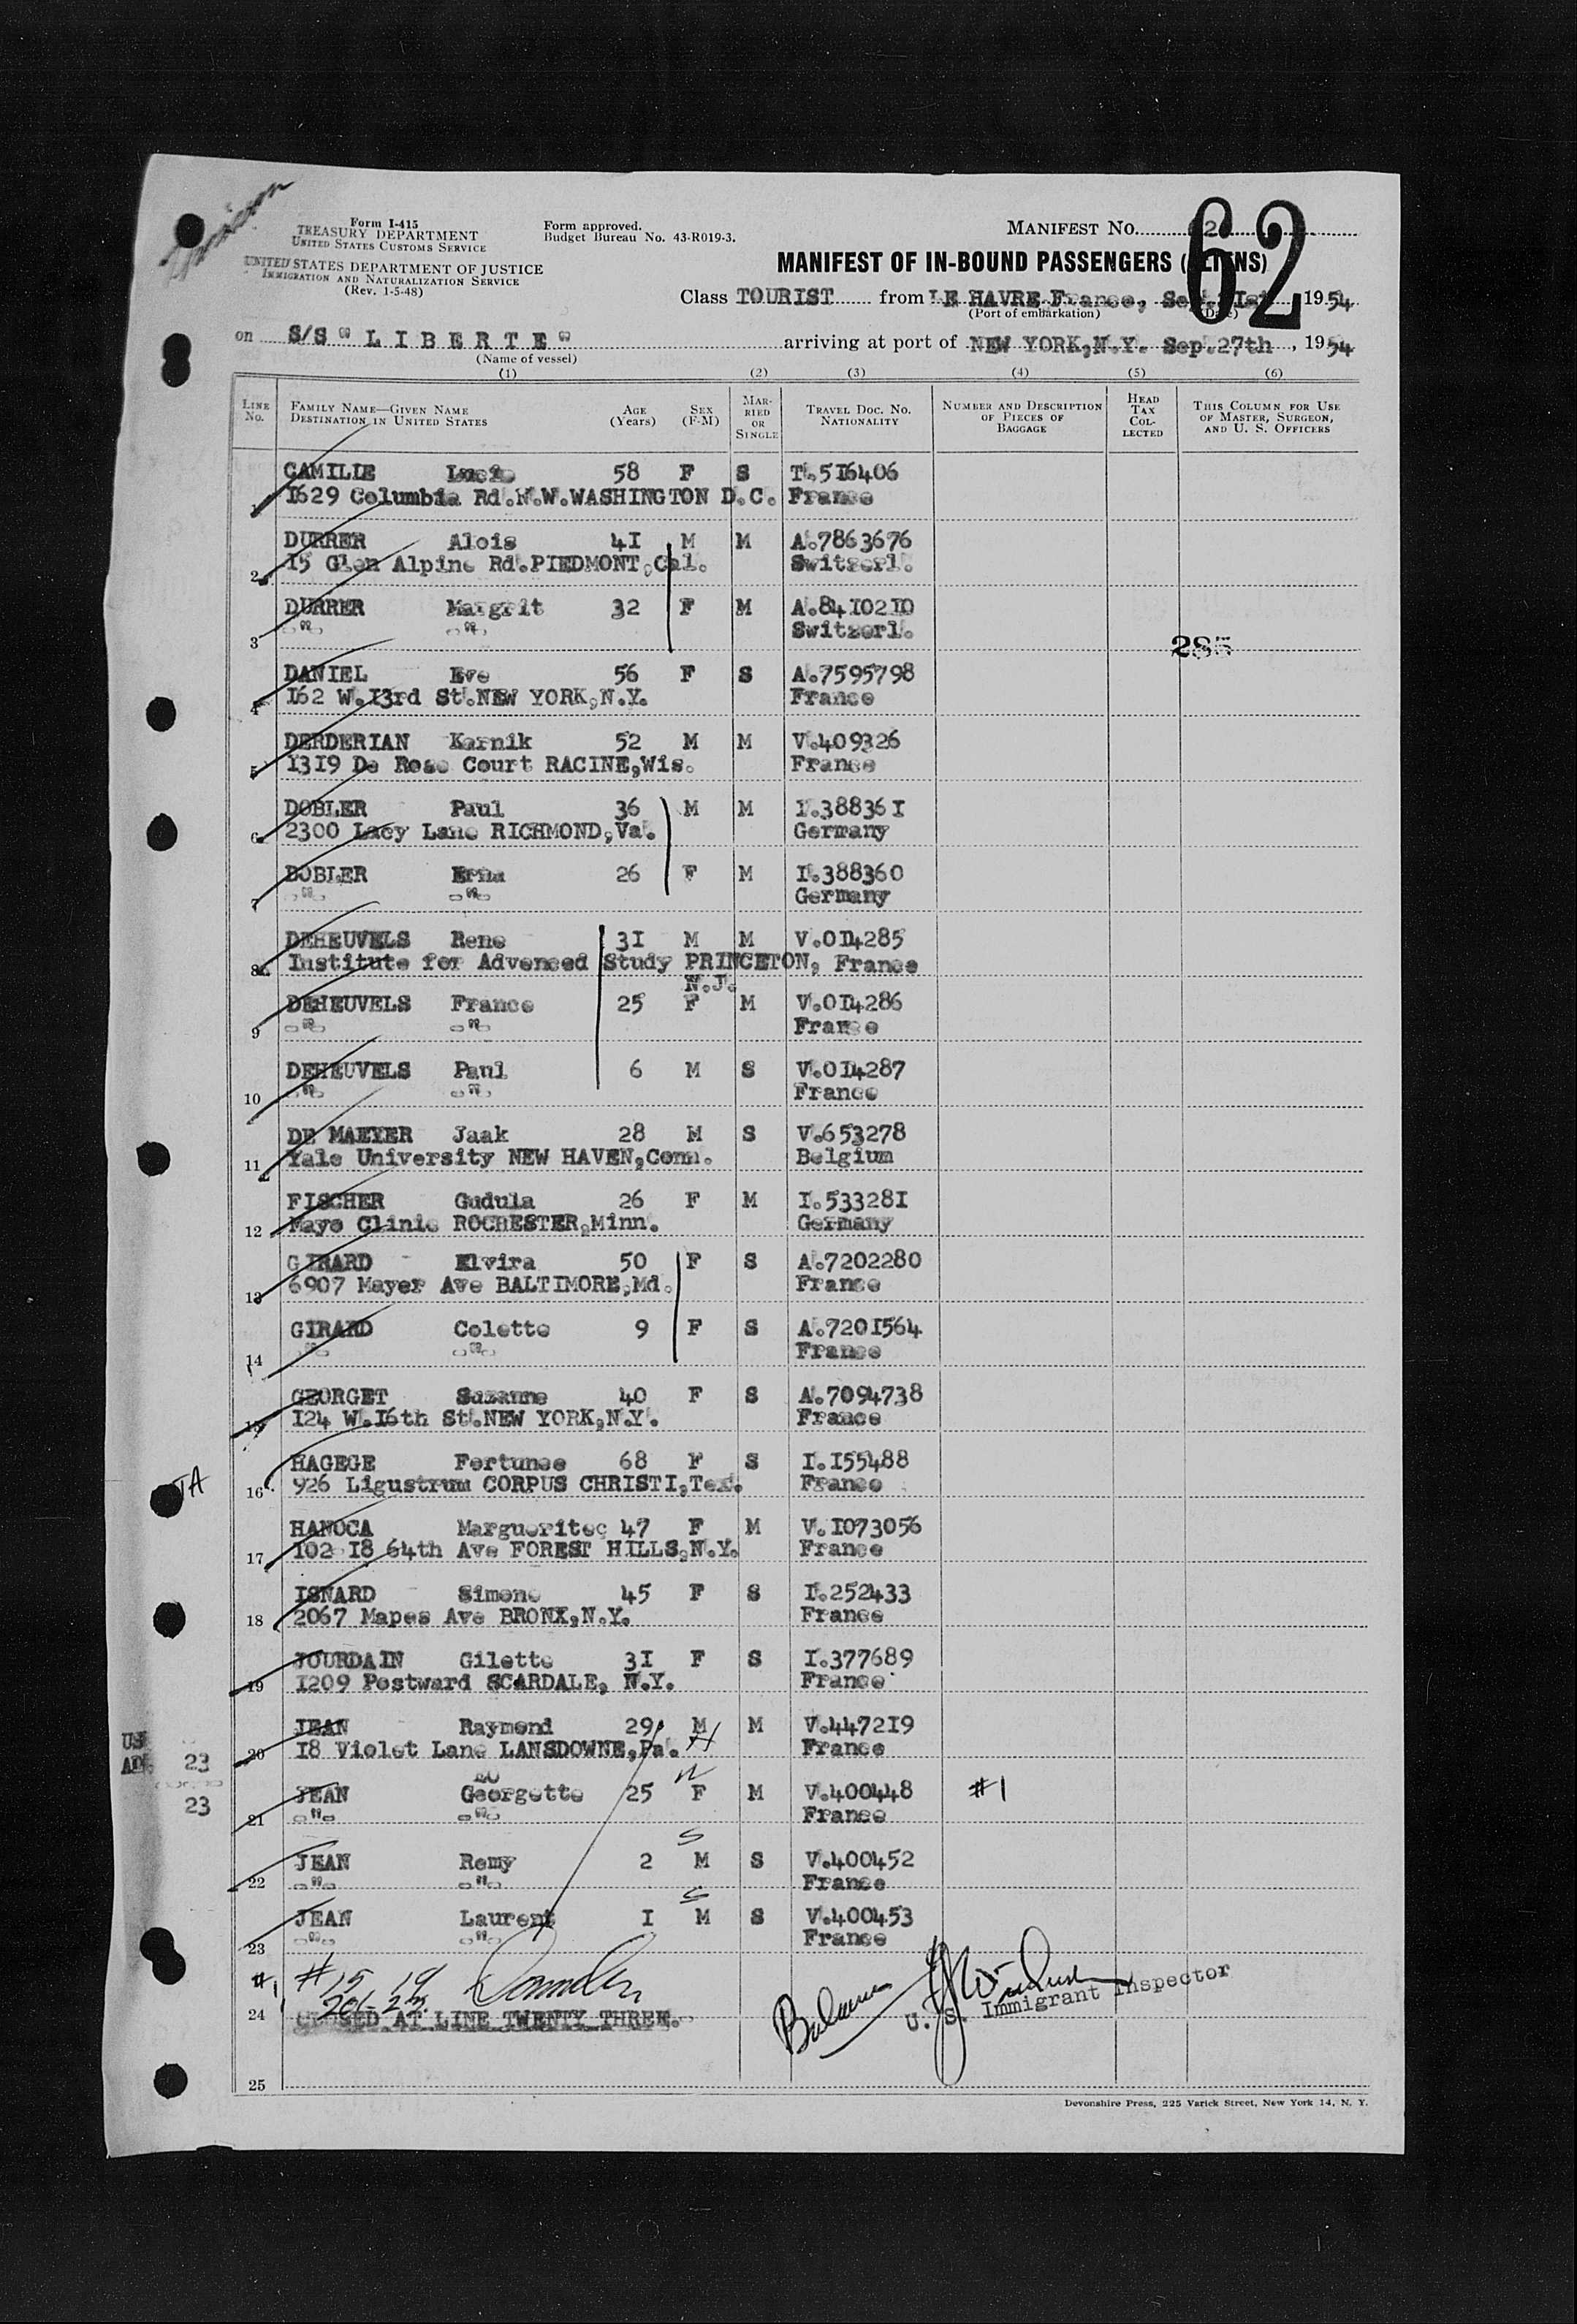 Form I-415
TREASURY DEPARTMENT
UNITED STATES CUSTOMS SERVICE
UNITED STATES DEPARTMENT OF JUSTICE
IMMIGRATION AND NATURALIZATION SERVICE
(Rev. 1-5-48)
Form approved.
Budget Bureau No. 43-R019-3.
MANIFEST No.
62
MANIFEST OF IN-BOUND PASSENGERS (ALIENS)
Class TOURIST from LE HAVRE France, Sep. 1954
(Port of embarkation) (Date)
on S/S " L I B E R T E " arriving at port of NEW YORK,N.Y. Sep.27th , 1954
(Name of vessel)
(1) (2) (3) (4) (5) (6)
LINE No. FAMILY NAME—GIVEN NAME DESTINATION IN UNITED STATES AGE (Years) SEX (F-M) MARRIED OR SINGLE TRAVEL DOC. NO. NATIONALITY NUMBER AND DESCRIPTION OF PIECES OF BAGGAGE HEAD TAX COLLECTED THIS COLUMN FOR USE OF MASTER, SURGEON, AND U. S. OFFICERS
CAMILLE 58 F S T.516406
1 1629 Columbia Rd.N.W.WASHINGTON D.C. France
DURRER Alois 41 M M A.7863676
2 15 Glen Alpine Rd.PIEDMONT,Cal. Switzerl.
DURRER Margrit 32 F M A.8410210
3 -"- -"- Switzerl.
285
DANIEL Eve 56 F S A.7595798
4 162 W.13rd St.NEW YORK,N.Y. France
DERDERIAN Karnik 52 M M V.409326
5 1319 De Rose Court RACINE,Wis. France
DOBLER Paul 36 M M I.388361
6 2300 Lacy Lane RICHMOND,Va. Germany
DOBLER Erna 26 F M I.388360
7 -"- -"- Germany
DEHEUVELS Rene 31 M M V.014285
8 Institute for Advenced Study PRINCETON, France
N.J.
DEHEUVELS France 25 F M V.014286
9 -"- -"- France
DEHEUVELS Paul 6 M S V.014287
10 -"- -"- France
DE MAEYER Jaak 28 M S V.653278
11 Yale University NEW HAVEN,Conn. Belgium
FISCHER Gudula 26 F M I.533281
12 Mayo Clinic ROCHESTER,Minn. Germany
GIRARD Elvira 50 F S A.7202280
13 6907 Mayer Ave BALTIMORE,Md. France
GIRARD Colette 9 F S A.7201564
14 -"- -"- France
GEORGET Suzanne 40 F S A.7094738
15 124 W.16th St.NEW YORK,N.Y. France
HAGEGE Fortunee 68 F S I.155488
TA 16 926 Ligustrum CORPUS CHRISTI,Tex. France
HANOCA Marguerite 47 F M V.1073056
17 102-18 64th Ave FOREST HILLS,N.Y. France
ISNARD Simone 45 F S I.252433
18 2067 Mapes Ave BRONX,N.Y. France
JOURDAIN Gilette 31 F S I.377689
19 1209 Postward SCARDALE, N.Y. France
JEAN Raymond 29 M M V.447219
20 18 Violet Lane LANSDOWNE,Pa. H France
US
AD. 23
23
W
JEAN Georgette 25 F M V.400448 #1
21 -"- -"- France
S
JEAN Remy 2 M S V.400452
22 -"- -"- France
S
JEAN Laurent 1 M S V.400453
23 -"- -"- France
#1 #15 19
24 CLOSED AT LINE TWENTY THREE.
U. S. Immigrant Inspector
25
Devonshire Press, 225 Varick Street, New York 14, N. Y.